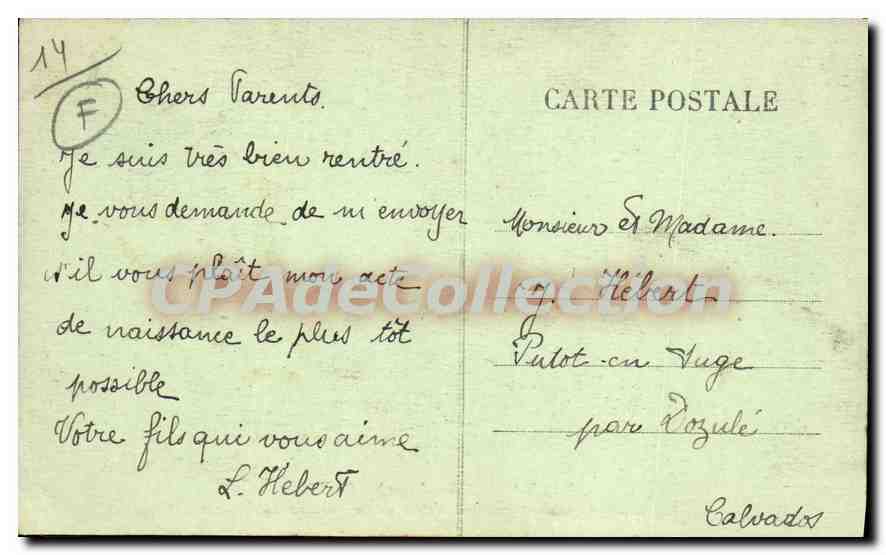 14
F
Chers Parents.
Je suis très bien rentré.
Je vous demande de m'envoyer
s'il vous plaît mon acte
de naissance le plus tôt
possible
Votre fils qui vous aime
L. Hébert
CARTE POSTALE
Monsieur et Madame.
J. Hébert
Putot-en Auge
par Dozulé
Calvados
CPAdeCollection